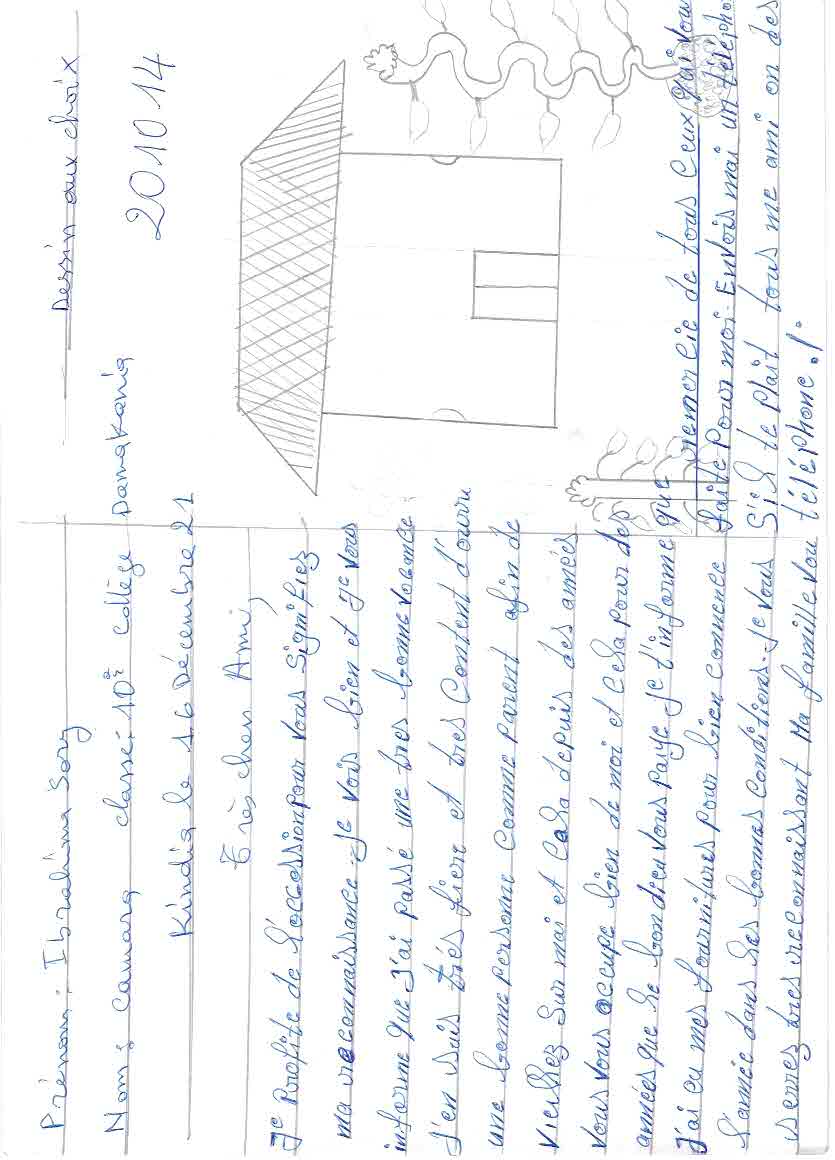 Prénom: Ibrahima Sory
Nom: Camara classe: 10è collège Damakania
Kindia le 16 Décembre 21
Très cher Ami,
Je Profite de l'occession pour vous signifiez
ma reconnaissance. Je vois bien et je vous
informe que J'ai passé une très bonne vacance
J'en suis très fière et très content d'ouvru
une bonne personne comme parent afin de
Vieillez sur moi et cela depuis des amées
Vous vous occupe bien de moi et cela pour des
années que le bon dieu vous paiye je t'informe que
J'ai eu mes fournitures pour bien conmence
l'année dans les bonnes conditions. Je vous
serres très reconnaissant Ma famille vou
Dessin aux choix
201014
remercie de tous ceux qui vou
faite pour moi. Envois moi un télépho
S'il te plaît tous me ami on des
téléphone.!.